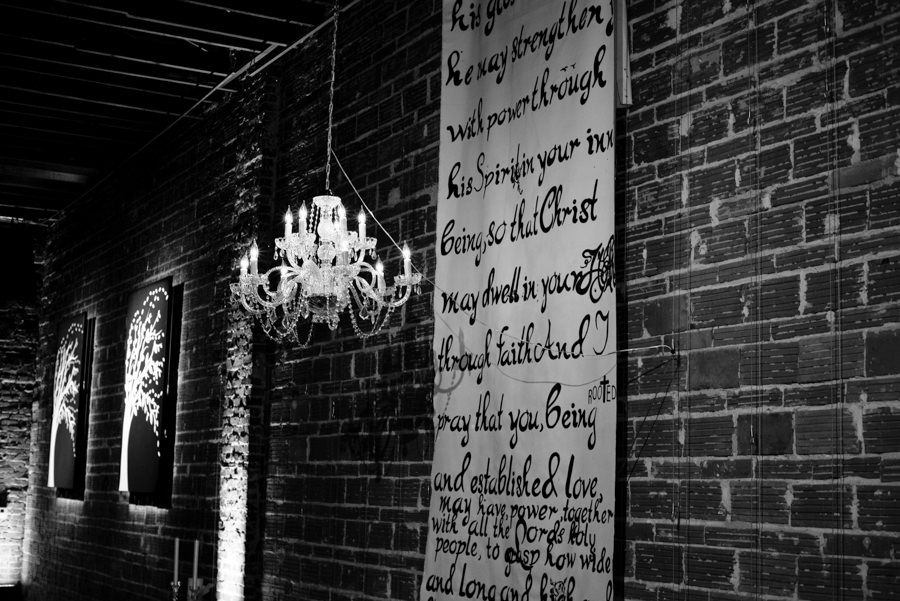 his
he may strengthen
with power through
his Spirit in your inn
being, so that Christ
may dwell in your
through faith And I
ROOTED
pray that you, being
and established Love,
may have power, together
with all the Lords holy
people, to grasp how wide
and long and high